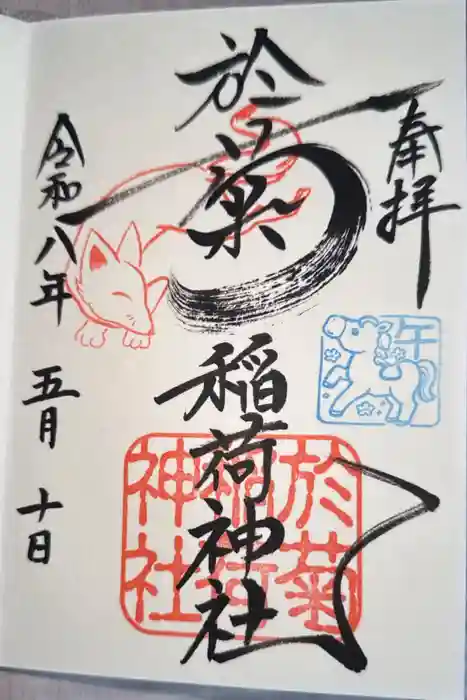 奉拝
午
於菊稲荷神社
於菊
稲荷
神社
令和八年 五月 十日